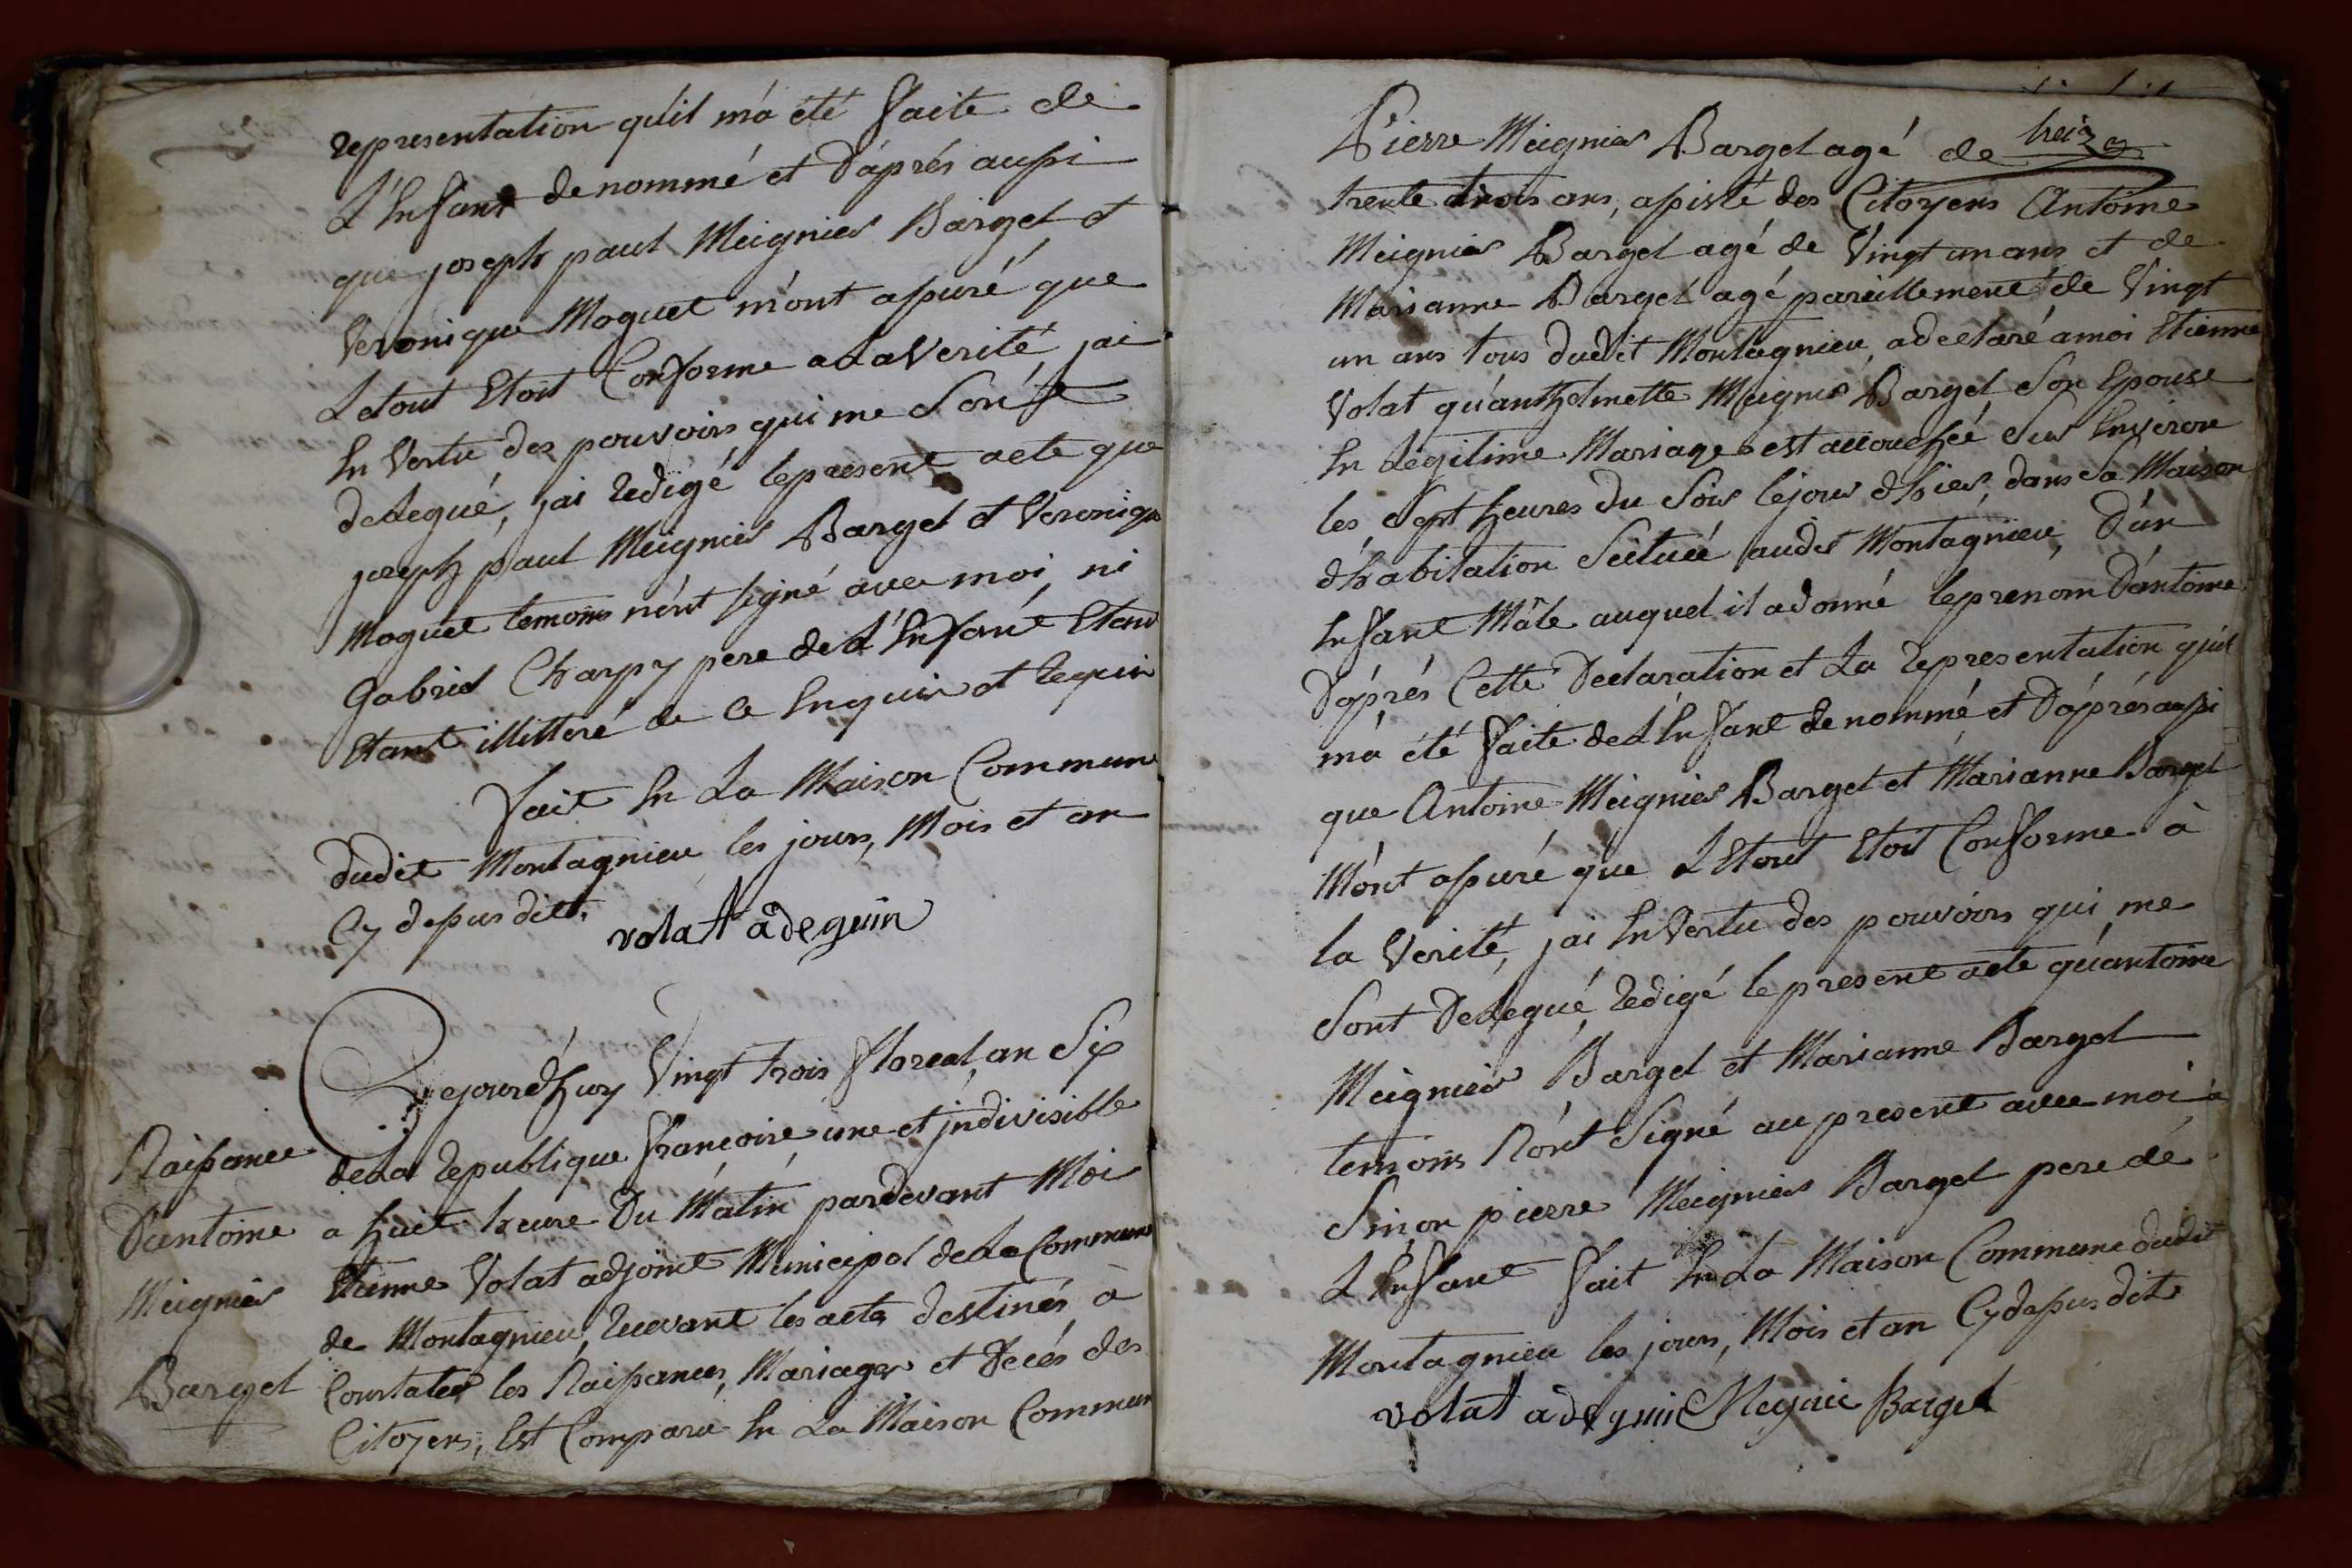 representation qu'il m'a été faite de
L'Enfant denommé et D'aprés aussi
que joseph paul Meignier Barget et
Veronique Moguet m'ont assuré que
Letout Etoit Conforme a La Verité, jai
En Vertu des pouvoirs qui me Sont
delegué, jai Redigé lepresent acte que
joseph paul Meignier Barget et Veronique
Moguet temoins n'ont signé avec moi, ni
Gabriel Charpy pere de L'Enfant
Etant illitteré de ce Enquis et Requis
fait En La Maison Commune
dudit Montagnieu les jours, Mois et an
Cy dessus dits,
volat adeguin
Cejourd'huy Vingt trois floreal, an Six
dela Republique francoise, une et jndivisible
Naissance
D'antoine
Meignier
Barget
a huit heure Du Matin pardevant Moi
Etienne Volat adjoint Municipal dela Commune
de Montagnieu, Recevant les actes destinés à
Constater les Naissances, Mariages et Decés des
Citoyens, Est Comparu En La Maison Commune
treize
Pierre Meignier Barget agé de
trente trois ans, assisté des Citoyens Antoine
Meignier Barget agé de Vingt un ans et de
Marianne Barget agé pareillement de Vingt
un ans tous dudit Montagnieu, a declaré a moi Etienne
Volat qu'anthelmette Meignier Barget Son Epouse
En Legitime Mariage est accouchée Sur Environ
les Sept heures du Soir lejour d'hier, dans Sa Maison
d'habitation Scituée audit Montagnieu, D'un
Enfant Mâle auquel il a donné leprenom D'antoine
D'aprés Cette Declaration et La Representation qu'il
m'a été faite de L'Enfant denommé et D'aprés aussi
que Antoine Meignier Barget et Marianne Barget
M'ont assuré que LEtout Etoit Conforme à
la Verité, jai En Vertu des pouvoirs qui me
Sont Delegué, Redigé le present acte qu'antoine
Meignier Barget et Marianne Barget
temoins N'ont Signé au present avec moi à
Sinon pierre Meignier Barget pere de
L'Enfant fait En La Maison Commune dudit
Montagnieu les jours, Mois et an Cy dessus dit
volat adeguin Megnie Barget